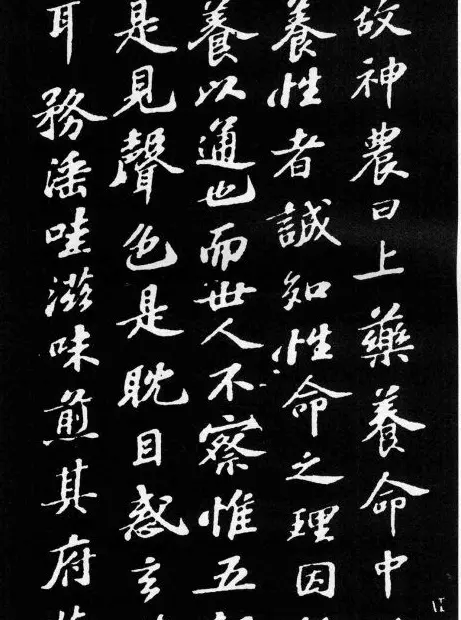 故神農曰上藥養命中
養性者誠知性命之理因
養以通也而世人不察惟五
是見聲色是耽目惑玄
耳務淫哇滋味煎其府